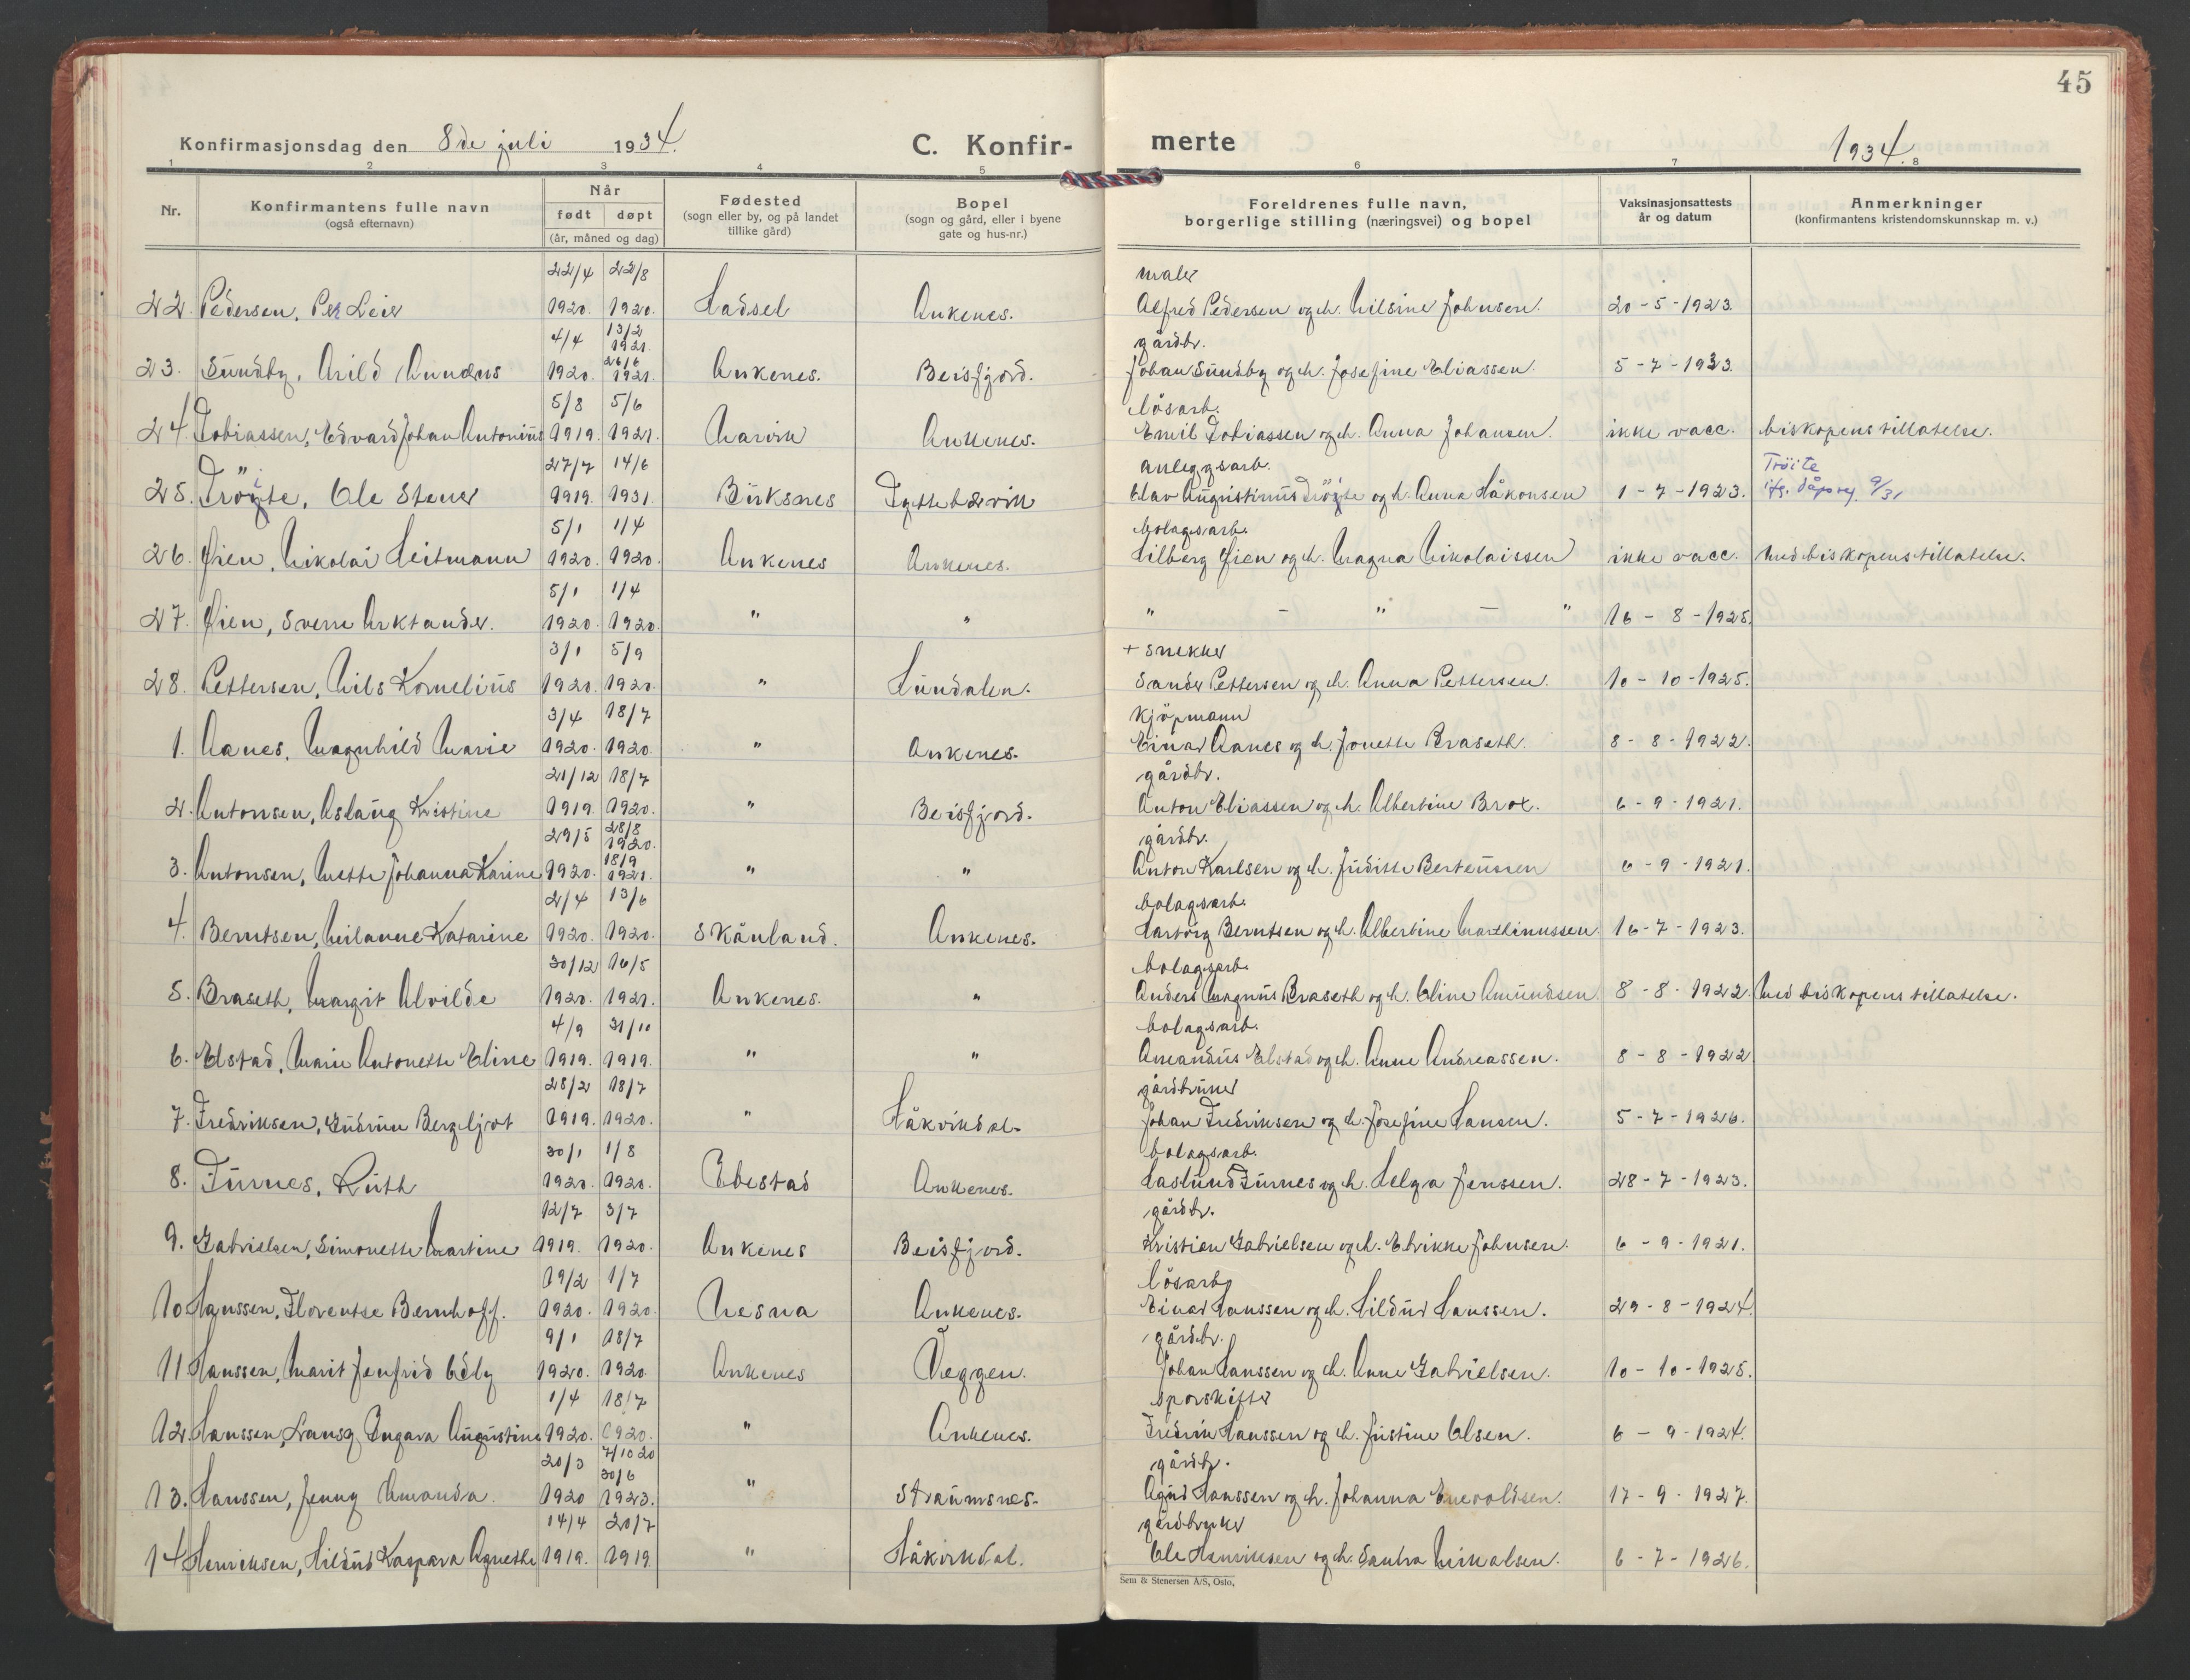 45
Konfirmasjonsdag den 8de juli 1934. C. Konfir-
merte 1934.
1 2 3 4 5 6 7 8
Nr. Konfirmantens fulle navn (også efternavn) Når født døpt (år, måned og dag) Fødested (sogn eller by, og på landet tillike gård) Bopel (sogn og gård, eller i byene gate og hus-nr.) Foreldrenes fulle navn, borgerlige stilling (næringsvei) og bopel Vaksinasjonsattests år og datum Anmerkninger (konfirmantens kristendomskunnskap m. v.)
22/4 22/8 maler
22. Pedersen, Per Leif 1920. 1920. Hadsel Ankenes. Alfred Pedersen og h. Nilsine Johnsen. 20-5-1923.
4/4 13/2 1921. gårdbr.
23. Sundby, Arild Amandus 1920. 26/6 1921. Ankenes. Beisfjord. Johan Sundby og h. Josefine Eliassen. 5-7-1923.
5/8 5/6 løsarb.
24. Tobiassen, Edvard Johan Antonius 1919. 1921. Narvik Ankenes. Emil Tobiassen og h. Anna Johansen. ikke vacc. biskopens tillatelse.
27/7 14/6 anleggsarb. Tröite
25. Tröite, Ole Stener 1919. 1931. Buksnes Tyttebærvik Olav Augustinus Tröite og h. Anna Håkonsen 1-7-1923. ifg. dåpsreg. 9/31
5/1 1/4 bolagsarb.
26. Øien, Nikolai Heitmann 1920. 1920. Ankenes Ankenes. Hilberg Øien og h. Magna Nikolaissen ikke vacc. med biskopens tillatelse.
5/1 1/4
27. Øien, Sverre Arktander. 1920. 1920. " " " - " - " 16-8-1925.
3/1 5/9 + snekker
28. Pettersen, Nils Kornelius 1920. 1920. " Lundalen. Sander Pettersen og h. Anna Pettersen. 10-10-1925.
3/4 18/7 Kjöpmann
1. Aanes, Magnhild Marie 1920. 1920. " Ankenes. Einar Aanes og h. Jonette Braseth. 8-8-1922.
21/12 18/7 gårdbr.
2. Antonsen, Aslaug Kristine 1919. 1920. " Beisfjord. Anton Eliassen og h. Albertine Brox. 6-9-1921.
29/5 28/8 1920. gårdbr.
3. Antonsen, Mette Johanna Karine 1920. 18/9 1921. " " Anton Karlsen og h. Juditte Berteussen 6-9-1921.
2/4 13/6 bolagsarb.
4. Berntsen, Milanne Katarine 1920. 1920. Skånland. Ankenes. Hartvig Berntsen og h. Albertine Marthinussen. 16-7-1923.
30/12 16/5 bolagsarb.
5. Braseth, Margit Alvilde 1920. 1921. Ankenes. " Anders Magnus Braseth og h. Oline Amundsen 8-8-1922. Med biskopens tillatelse.
4/9 31/10 bolagsarb.
6. Elstad, Marie Antonette Eline 1919. 1919. " " Amandus Elstad og h. Anne Andreassen. 8-8-1922
28/2 18/7 gårdbruker
7. Fredriksen, Gudrun Bergljot 1919. 1920. " Håkvikdal. Johan Fredriksen og h. Josefine Hansen. 5-7-1926.
30/1 1/8 bolagsarb.
8. Furnes, Ruth 1920. 1920. Ibestad Ankenes. Haslund Furnes og h. Helga Jenssen. 28-7-1923.
12/7 3/7 gårdbr.
9. Gabrielsen, Simonette Martine 1919. 1920. Ankenes Beisfjord. Kristian Gabrielsen og h. Edrikke Johnsen. 6-9-1921.
19/2 1/7 løsarb.
10 Hanssen, Florentse Bernhoff. 1920. 1920. Nesna Ankenes. Einar Hanssen og h. Hildur Hanssen. 29-8-1924.
9/1 18/7 gårdbr.
11 Hanssen, Marit Jenfrid Odly 1920. 1920. Ankenes Veggen. Johan Hanssen og h. Anne Gabrielsen. 10-10-1925.
1/4 18/7 sporskifter
12. Hanssen, Fransy Ingara Augustine 1920. 1920. " Ankenes. Fredrik Hanssen og h. Justine Olsen. 6-9-1924.
20/3 7/10 20 gårdbr.
13. Hanssen, Jenny Amanda. 1920 30/6 1923. " Straumsnes. Agnd Hanssen og h. Johanna Enevoldsen. 17-9-1927.
14/4 20/7 gårdbruker
14 Henriksen, Hildur Kaspara Agnethe 1919. 1919. " Håkvikdal. Ole Henriksen og h. Sandra Mikalsen. 6-7-1926.
Sem & Stenersen A/S, Oslo,